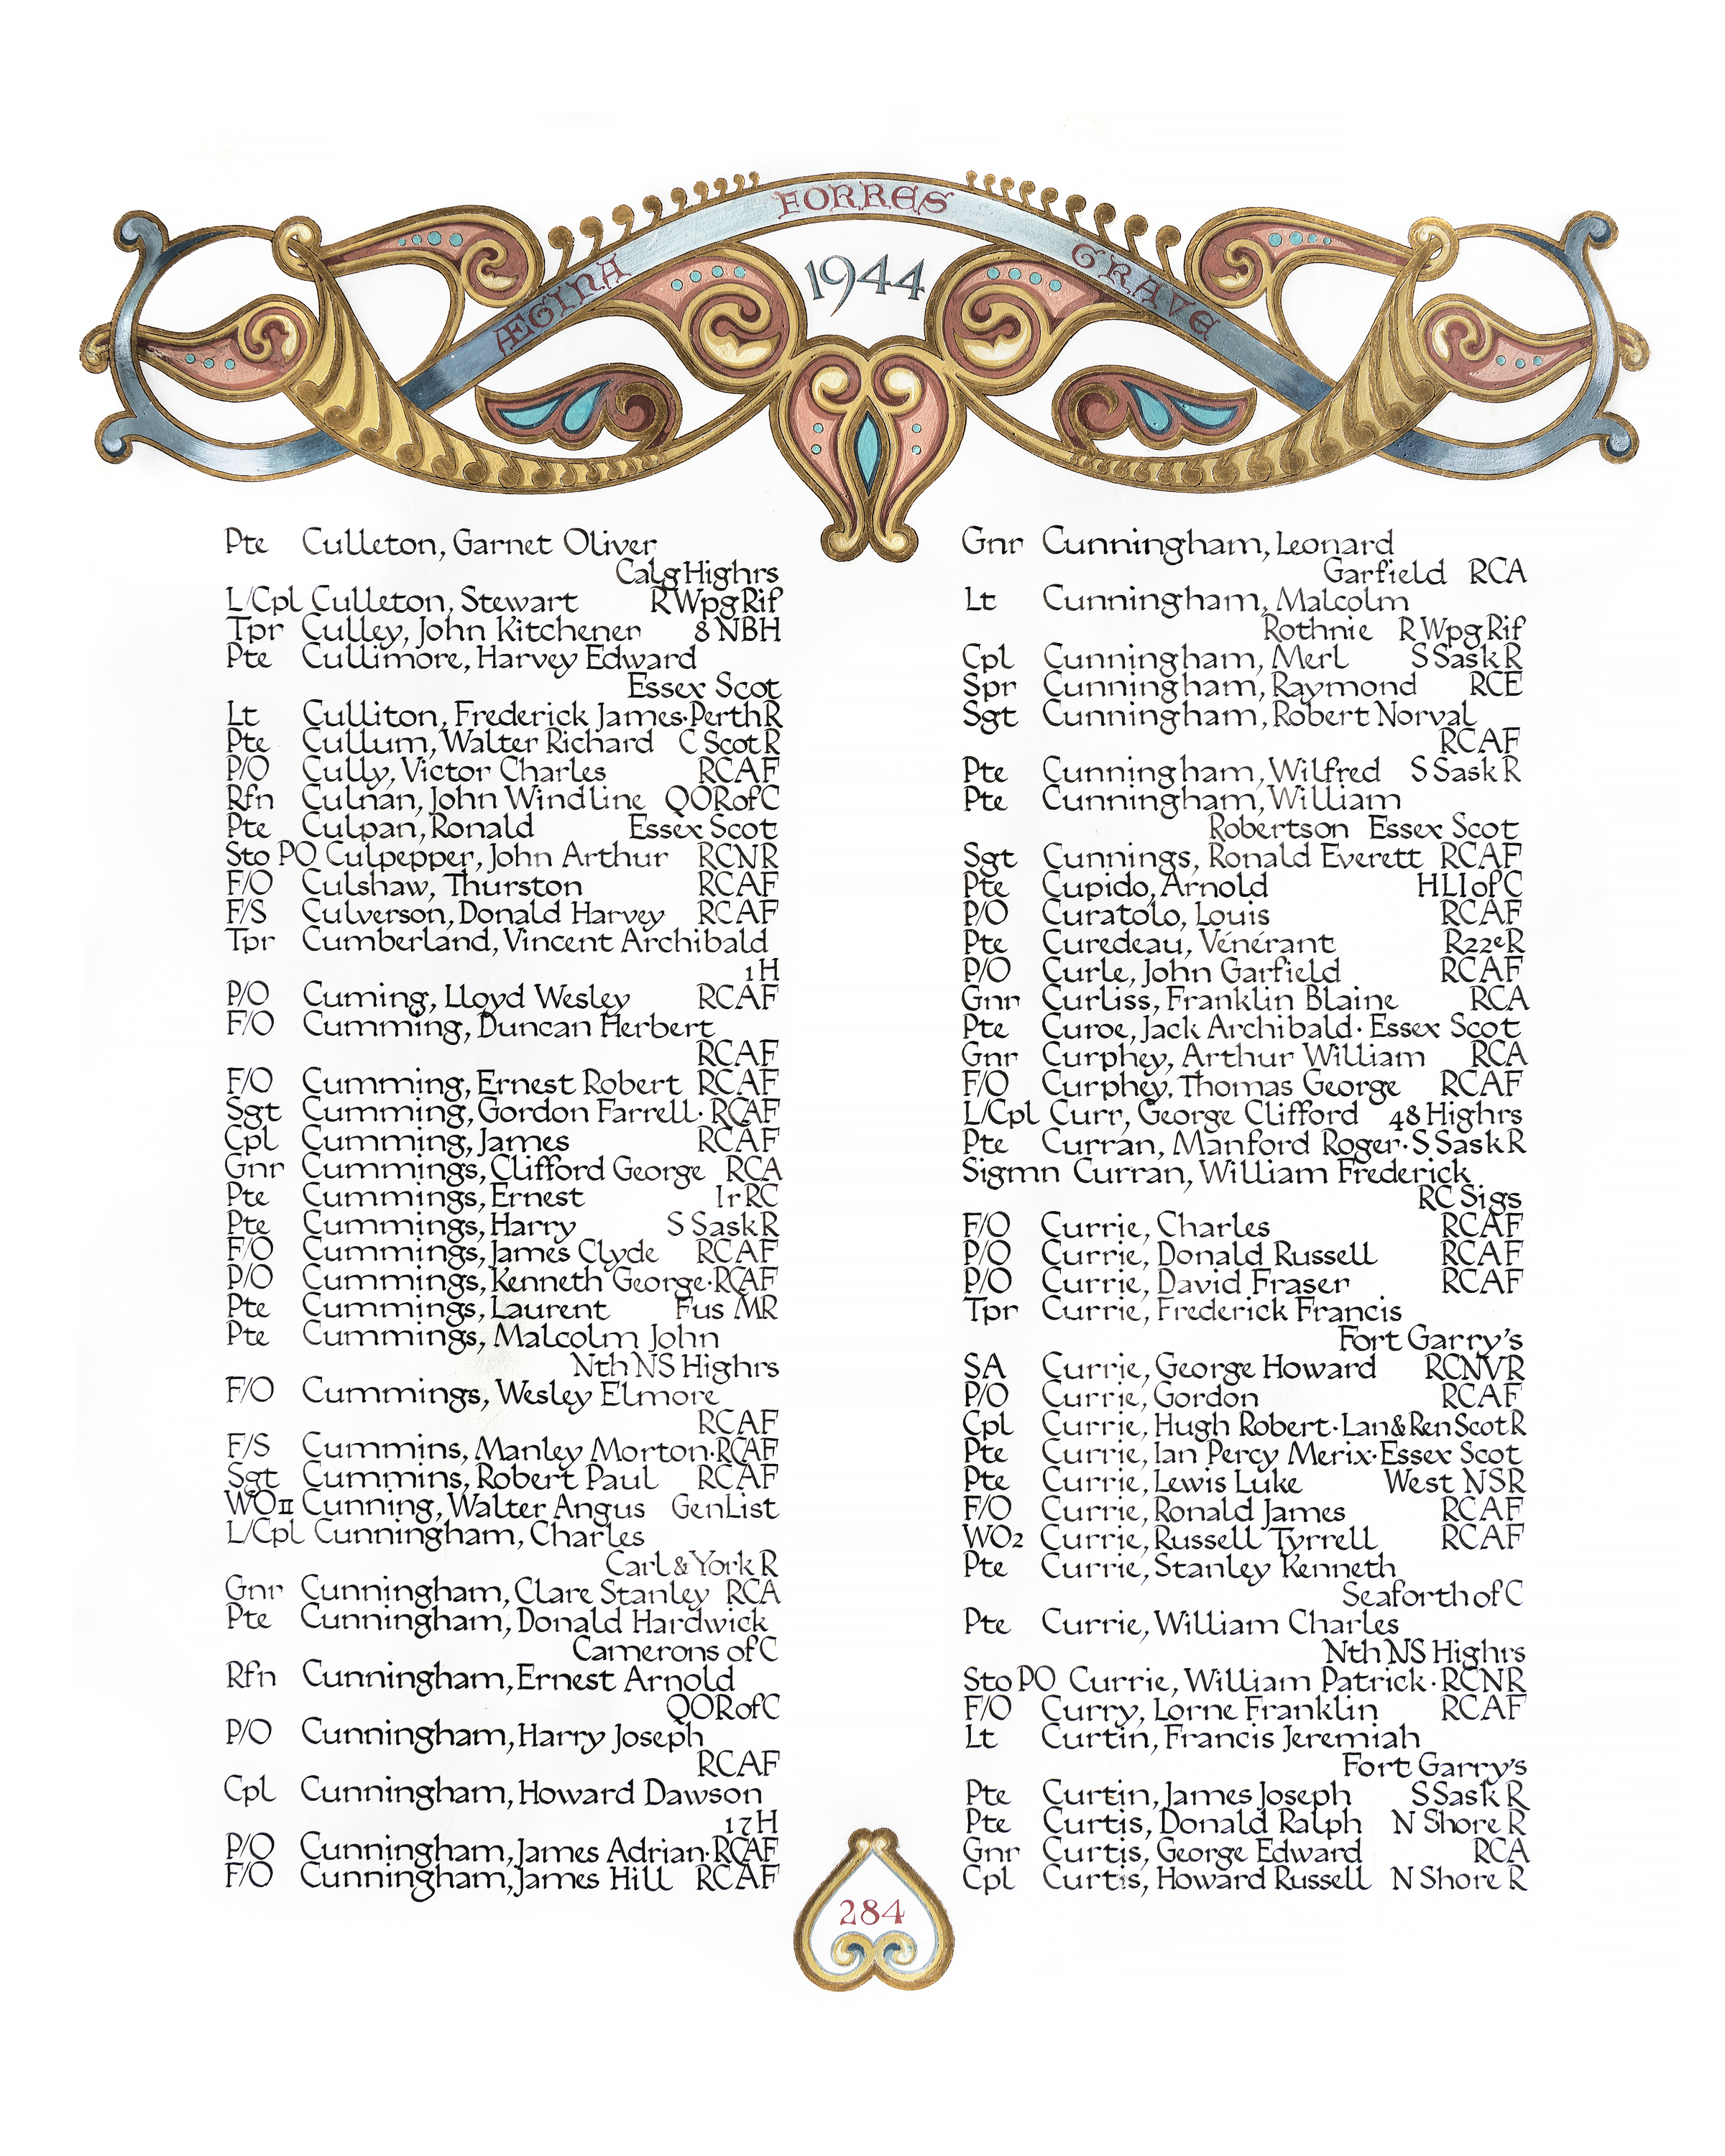 FORRES
ÆGINA
GRAVE
1944
Pte Culleton, Garnet Oliver
Calg Highrs
L/Cpl Culleton, Stewart R Wpg Rif
Tpr Culley, John Kitchener 8 NBH
Pte Cullimore, Harvey Edward
Essex Scot
Lt Culliton, Frederick James·Perth R
Pte Cullum, Walter Richard C Scot R
P/O Cully, Victor Charles RCAF
Rfn Culnan, John Windline QOR of C
Pte Culpan, Ronald Essex Scot
Sto PO Culpepper, John Arthur RCNR
F/O Culshaw, Thurston RCAF
F/S Culverson, Donald Harvey RCAF
Tpr Cumberland, Vincent Archibald
1 H
P/O Cuming, Lloyd Wesley RCAF
F/O Cumming, Duncan Herbert
RCAF
F/O Cumming, Ernest Robert RCAF
Sgt Cumming, Gordon Farrell·RCAF
Cpl Cumming, James RCAF
Gnr Cummings, Clifford George RCA
Pte Cummings, Ernest Ir RC
Pte Cummings, Harry S Sask R
F/O Cummings, James Clyde RCAF
P/O Cummings, Kenneth George·RCAF
Pte Cummings, Laurent Fus MR
Pte Cummings, Malcolm John
Nth NS Highrs
F/O Cummings, Wesley Elmore
RCAF
F/S Cummins, Manley Morton·RCAF
Sgt Cummins, Robert Paul RCAF
WO II Cunning, Walter Angus Gen List
L/Cpl Cunningham, Charles
Carl & York R
Gnr Cunningham, Clare Stanley RCA
Pte Cunningham, Donald Hardwick
Camerons of C
Rfn Cunningham, Ernest Arnold
QOR of C
P/O Cunningham, Harry Joseph
RCAF
Cpl Cunningham, Howard Dawson
17 H
P/O Cunningham, James Adrian·RCAF
F/O Cunningham, James Hill RCAF
Gnr Cunningham, Leonard
Garfield RCA
Lt Cunningham, Malcolm
Rothnie R Wpg Rif
Cpl Cunningham, Merl S Sask R
Spr Cunningham, Raymond RCE
Sgt Cunningham, Robert Norval
RCAF
Pte Cunningham, Wilfred S Sask R
Pte Cunningham, William
Robertson Essex Scot
Sgt Cunnings, Ronald Everett RCAF
Pte Cupido, Arnold HLI of C
P/O Curatolo, Louis RCAF
Pte Curedeau, Vénérant R22eR
P/O Curle, John Garfield RCAF
Gnr Curliss, Franklin Blaine RCA
Pte Curoe, Jack Archibald·Essex Scot
Gnr Curphey, Arthur William RCA
F/O Curphey, Thomas George RCAF
L/Cpl Curr, George Clifford 48 Highrs
Pte Curran, Manford Roger·S Sask R
Sigmn Curran, William Frederick
RC Sigs
F/O Currie, Charles RCAF
P/O Currie, Donald Russell RCAF
P/O Currie, David Fraser RCAF
Tpr Currie, Frederick Francis
Fort Garry's
SA Currie, George Howard RCNVR
P/O Currie, Gordon RCAF
Cpl Currie, Hugh Robert·Lan & Ren Scot R
Pte Currie, Ian Percy Merix·Essex Scot
Pte Currie, Lewis Luke West NSR
F/O Currie, Ronald James RCAF
WO2 Currie, Russell Tyrrell RCAF
Pte Currie, Stanley Kenneth
Seaforth of C
Pte Currie, William Charles
Nth NS Highrs
Sto PO Currie, William Patrick·RCNR
F/O Curry, Lorne Franklin RCAF
Lt Curtin, Francis Jeremiah
Fort Garry's
Pte Curtin, James Joseph S Sask R
Pte Curtis, Donald Ralph N Shore R
Gnr Curtis, George Edward RCA
Cpl Curtis, Howard Russell N Shore R
284